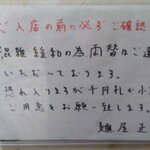 ご入店の前に必ずご確認
混雑緩和の為両替はご遠
いただいております。
恐れ入りますが千円札か小
ご用意をお願い致します。
麺屋正